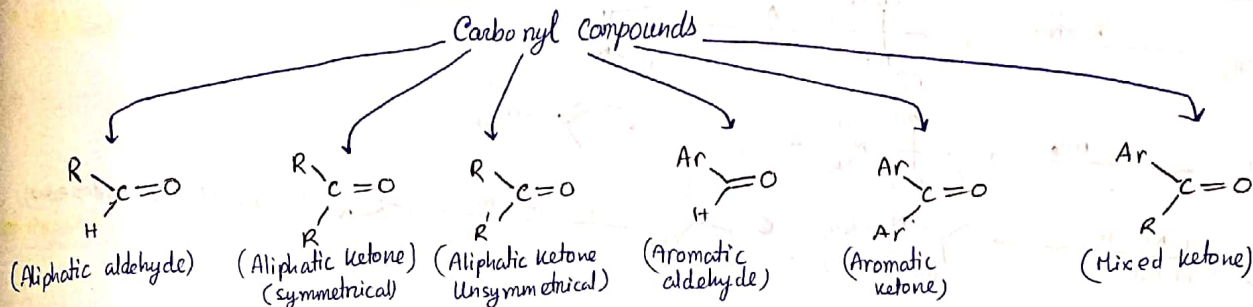 Carbonyl Compounds
R
C=O
H
(Aliphatic aldehyde)
R
C=O
R
(Aliphatic ketone)
(symmetrical)
R
C=O
R'
(Aliphatic ketone
Unsymmetrical)
Ar
=O
H
(Aromatic
aldehyde)
Ar
C=O
Ar
(Aromatic
ketone)
Ar
C=O
R
(Mixed ketone)